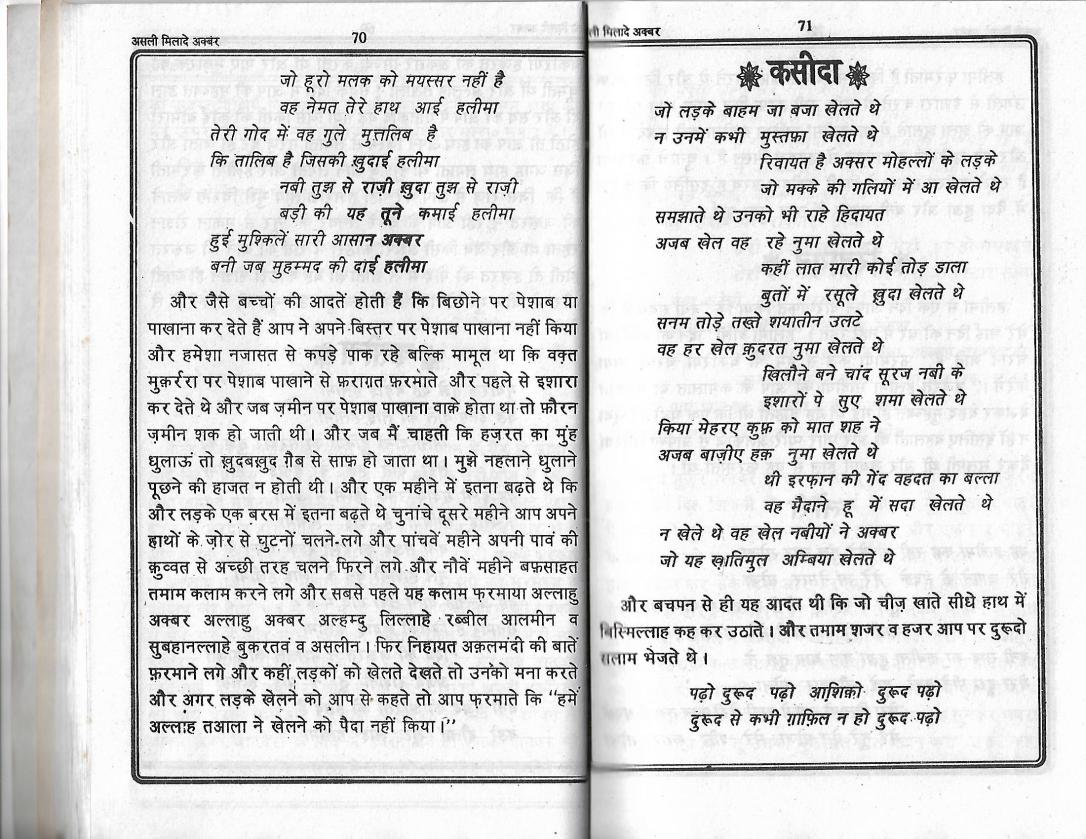 असली मिलादे अक्बर
70
जो हूरो मलक को मयस्सर नहीं है
वह नेमत तेरे हाथ आई हलीमा
तेरी गोद में वह गुले मुत्तलिब है
कि तालिब है जिसकी ख़ुदाई हलीमा
नबी तुझ से राज़ी ख़ुदा तुझ से राजी
बड़ी की यह तूने कमाई हलीमा
हुई मुश्किलें सारी आसान अक्बर
बनी जब मुहम्मद की दाई हलीमा
और जैसे बच्चों की आदतें होती हैं कि बिछोने पर पेशाब या
पाखाना कर देते हैं आप ने अपने बिस्तर पर पेशाब पाखाना नहीं किया
और हमेशा नजासत से कपड़े पाक रहे बल्कि मामूल था कि वक़्त
मुक़र्ररा पर पेशाब पाखाने से फ़राग़त फ़रमाते और पहले से इशारा
कर देते थे और जब ज़मीन पर पेशाब पाखाना वाक़े होता था तो फ़ौरन
ज़मीन शक हो जाती थी। और जब मैं चाहती कि हज़रत का मुंह
धुलाऊं तो ख़ुदबख़ुद ग़ैब से साफ़ हो जाता था। मुझे नहलाने धुलाने
पूछने की हाजत न होती थी। और एक महीने में इतना बढ़ते थे कि
और लड़के एक बरस में इतना बढ़ते थे चुनांचे दूसरे महीने आप अपने
हाथों के ज़ोर से घुटनों चलने-लगे और पांचवें महीने अपनी पाव की
कुव्वत से अच्छी तरह चलने फिरने लगे और नौवें महीने बफ़साहत
तमाम कलाम करने लगे और सबसे पहले यह कलाम फ़रमाया अल्लाहु
अक्बर अल्लाहु अक्बर अल्हम्दु लिल्लाहे रब्बील आलमीन व
सुबहानल्लाहे बुकरतवं व असलीन। फिर निहायत अक़लमंदी की बातें
फ़रमाने लगे और कहीं लड़कों को खेलते देखते तो उनको मना करते
और अगर लड़के खेलने को आप से कहते तो आप फ़रमाते कि “हमें
अल्लाह तआला ने खेलने को पैदा नहीं किया।”
ली मिलादे अक्बर
71
कसीदा
जो लड़के बाहम जा बजा खेलते थे
न उनमें कभी मुस्तफ़ा खेलते थे
रिवायत है अक्सर मोहल्लों के लड़के
जो मक्के की गलियों में आ खेलते थे
समझाते थे उनको भी राहे हिदायत
अजब खेल वह रहे नुमा खेलते थे
कहीं लात मारी कोई तोड़ डाला
बुतों में रसूले ख़ुदा खेलते थे
सनम तोड़े तख्ते शयातीन उलटे
वह हर खेल क़ुदरत नुमा खेलते थे
खिलौने बने चांद सूरज नबी के
इशारों पे सुए शमा खेलते थे
किया मेहरए कुफ़्र को मात शह ने
अजब बाज़ीए हक़ नुमा खेलते थे
थी इरफ़ान की गेंद वहदत का बल्ला
वह मैदाने हू में सदा खेलते थे
न खेले थे वह खेल नबीयों ने अक्बर
जो यह ख़ातिमुल अम्बिया खेलते थे
और बचपन से ही यह आदत थी कि जो चीज़ खाते सीधे हाथ में
बिस्मिल्लाह कह कर उठाते। और तमाम शजर व हजर आप पर दुरूदो
सलाम भेजते थे।
पढ़ो दुरूद पढ़ो आशिक़ो दुरूद पढ़ो
दुरूद से कभी ग़ाफ़िल न हो दुरूद पढ़ो